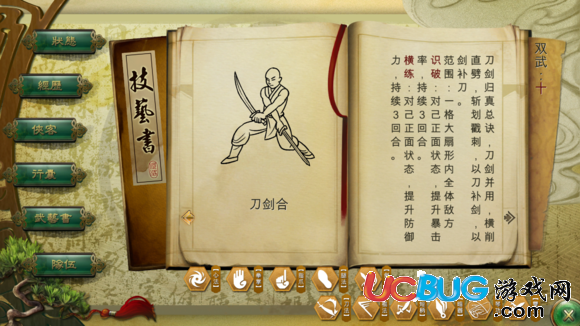 狀態
經歷
俠客
行囊
武藝書
隊伍
技藝書
刀剑合
双武：十
刀剑归真总诀，刀剑并用，横削
直劈，斩划戳刺，以刀补剑，以
剑补刀。
范围：一格大扇形内全体敌方
识破：对己正面状态，提升暴击
率，持续3回合。
横练：对己正面状态，提升防御
力，持续3回合。
UCBUG游戏网
.com